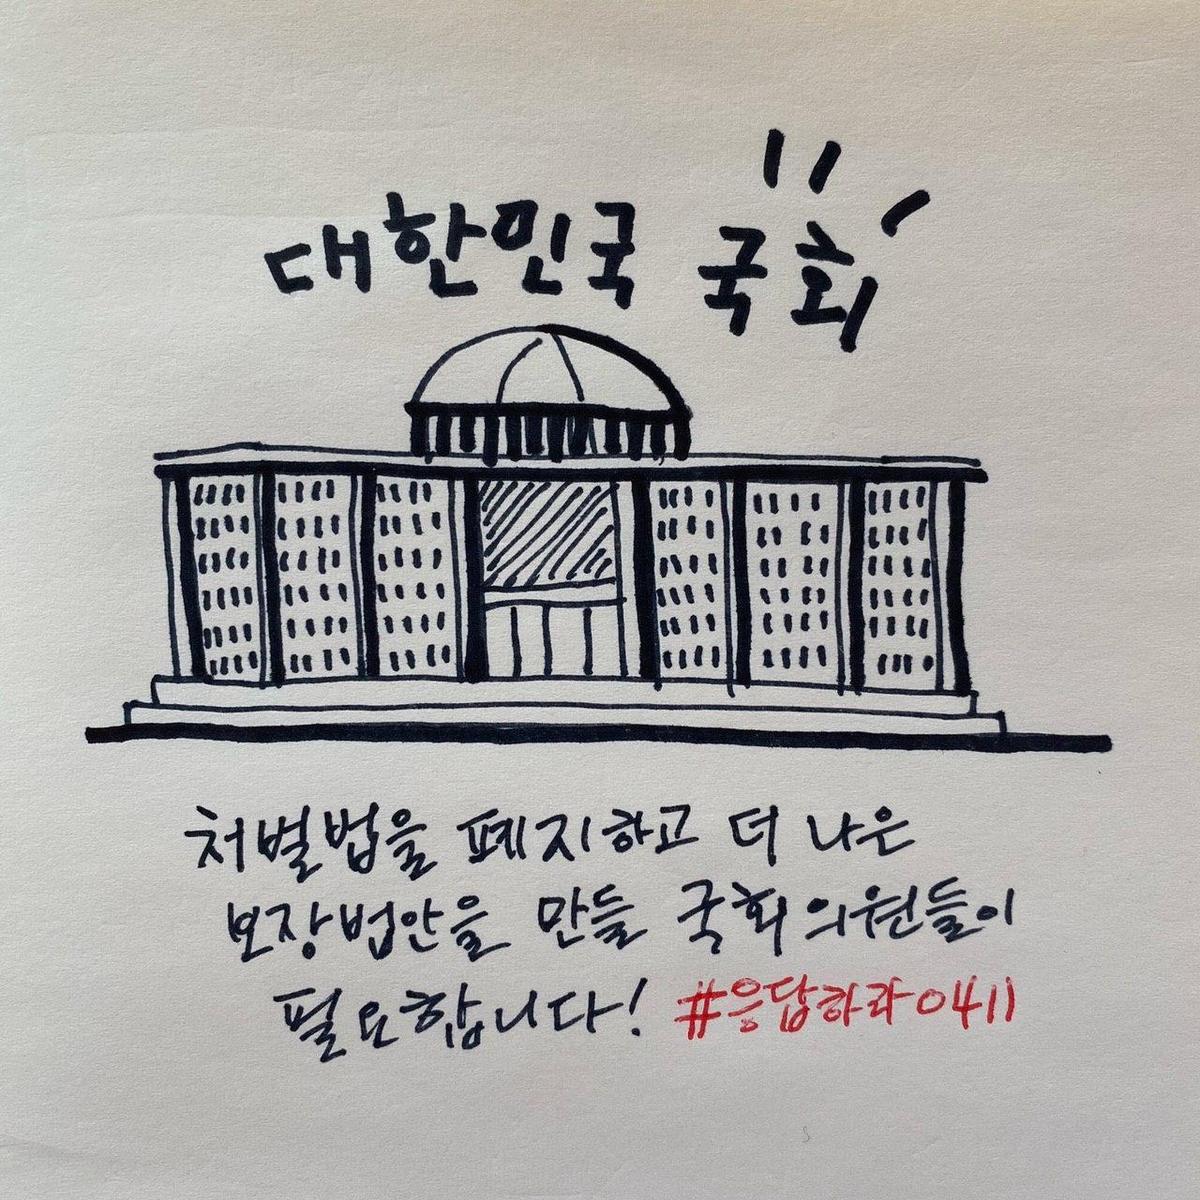 대한민국 국회
처벌법을 폐지하고 더 나은
보장법안을 만들 국회의원들이
필요합니다! #응답하라0411